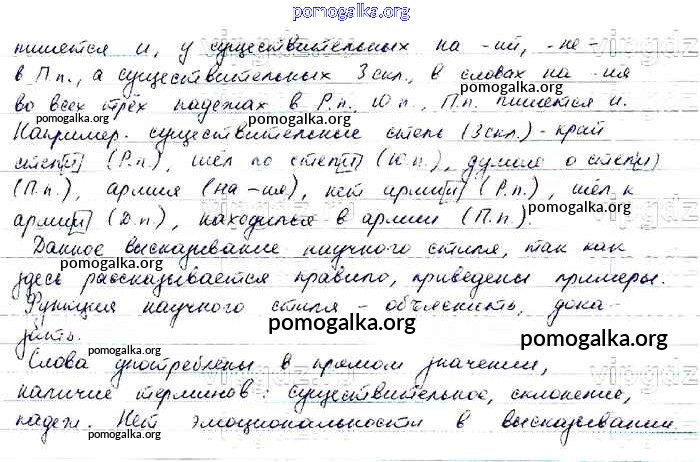 pomogalka.org
пишется и, у существительных на -ий, -ие-
в П.п., а существительных 3 скл., в словах на -ия
во всех трёх падежах в Р.п., Ю п., П.п. пишется и.
Например: существительное степь (3 скл.) - край
степ[и] (Р.п.), шёл по степ[и] (Ю п.), думал о степ[и]
(П.п.), армия (на -ия), нет арми[и] (Р.п.), шёл к
арми[и] (Д.п.), находился в армии (П.п.).
Данное высказывание научного стиля, так как
здесь рассказывается правило, приведены примеры.
Функция научного стиля - объяснить, дока-
зать.
Слова употреблены в прямом значении,
наличие терминов: существительное, склонение,
падеж. Нет эмоциональности в высказывании.
pomogalka.org
pomogalka.org
pomogalka.org
pomogalka.org
pomogalka.org
pomogalka.org
pomogalka.org
pomogalka.org
pomogalka.org